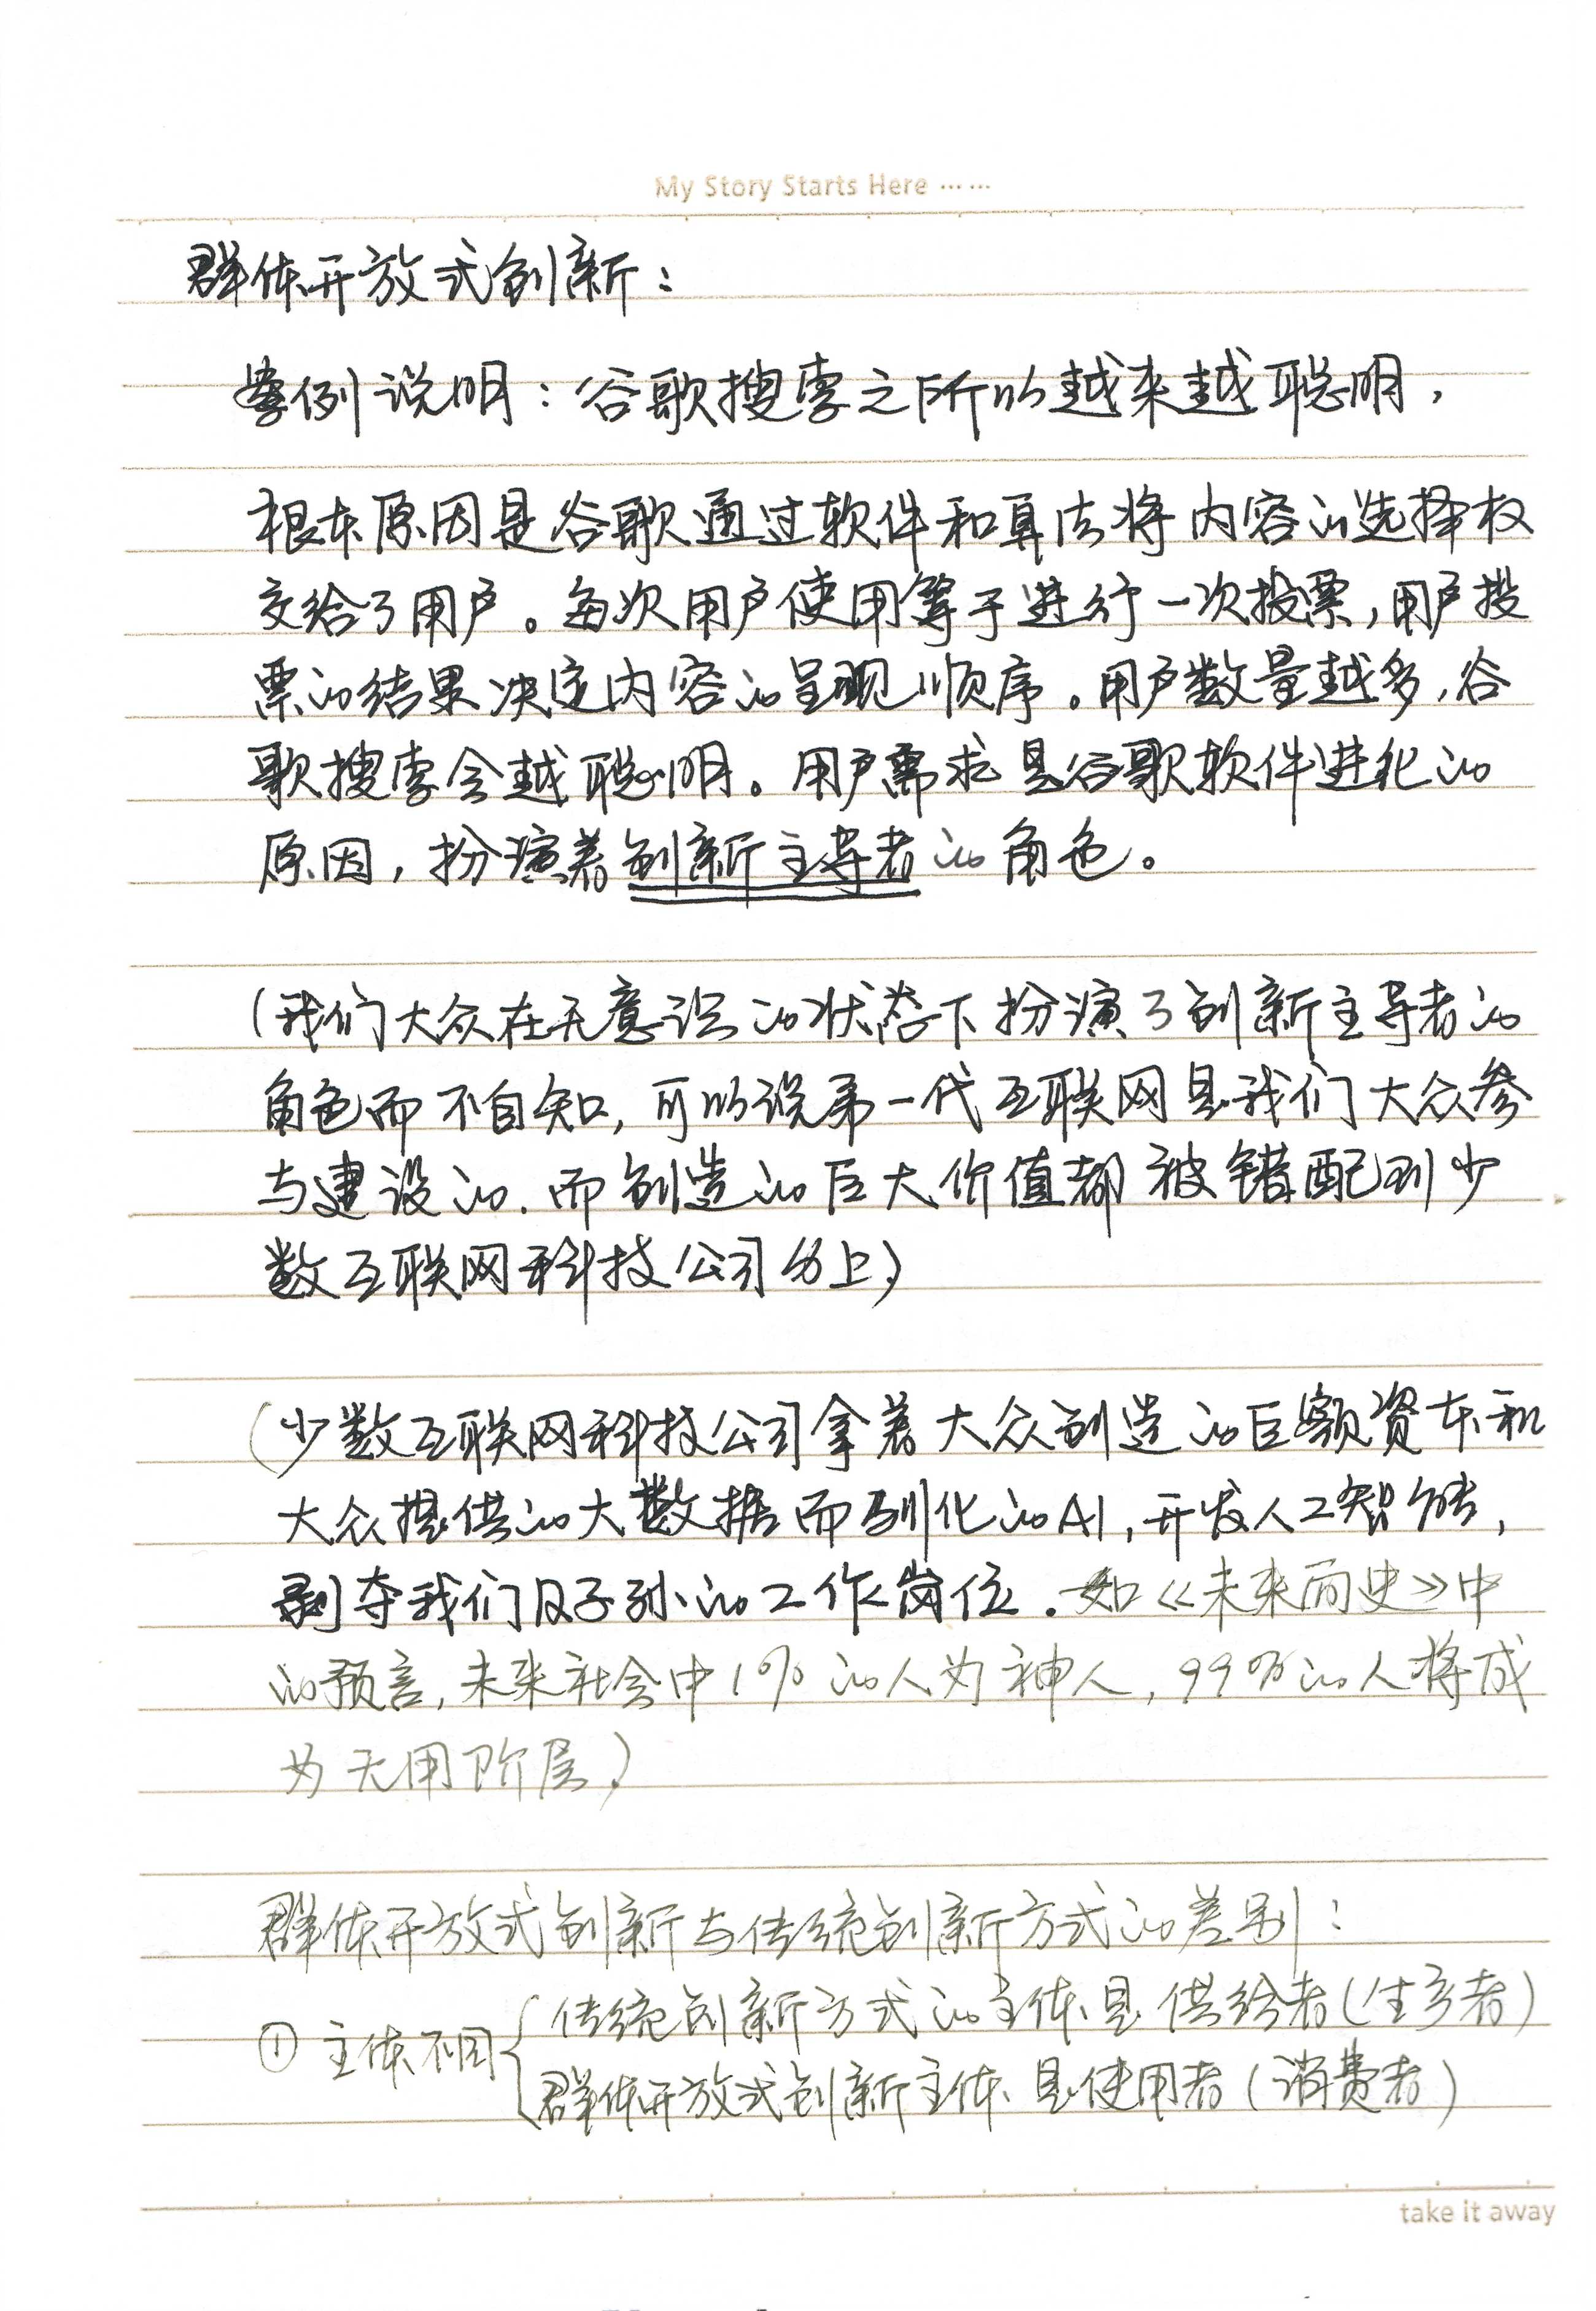 My Story Starts Here ……
群体开放式创新：
案例说明：谷歌搜索之所以越来越聪明，
根本原因是谷歌通过软件和算法将内容的选择权
交给了用户。每次用户使用等于进行一次投票，用户投
票的结果决定内容的呈现顺序。用户数量越多，谷
歌搜索会越聪明。用户需求是谷歌软件进化的
原因，扮演着创新主导者的角色。
（我们大众在无意识的状态下扮演了创新主导者的
角色而不自知，可以说第一代互联网是我们大众参
与建设的．而创造的巨大价值都被错配到少
数互联网科技公司身上）
（少数互联网科技公司拿着大众创造的巨额资本和
大众提供的大数据而驯化的AI，开发人工智能，
剥夺我们及子孙的工作岗位．如《未来简史》中
的预言，未来社会中1%的人为神人，99%的人将成
为无用阶层）
群体开放式创新与传统创新方式的差别：
① 主体不同 { 传统创新方式的主体是供给者（生产者）
群体开放式创新主体是使用者（消费者）
take it away